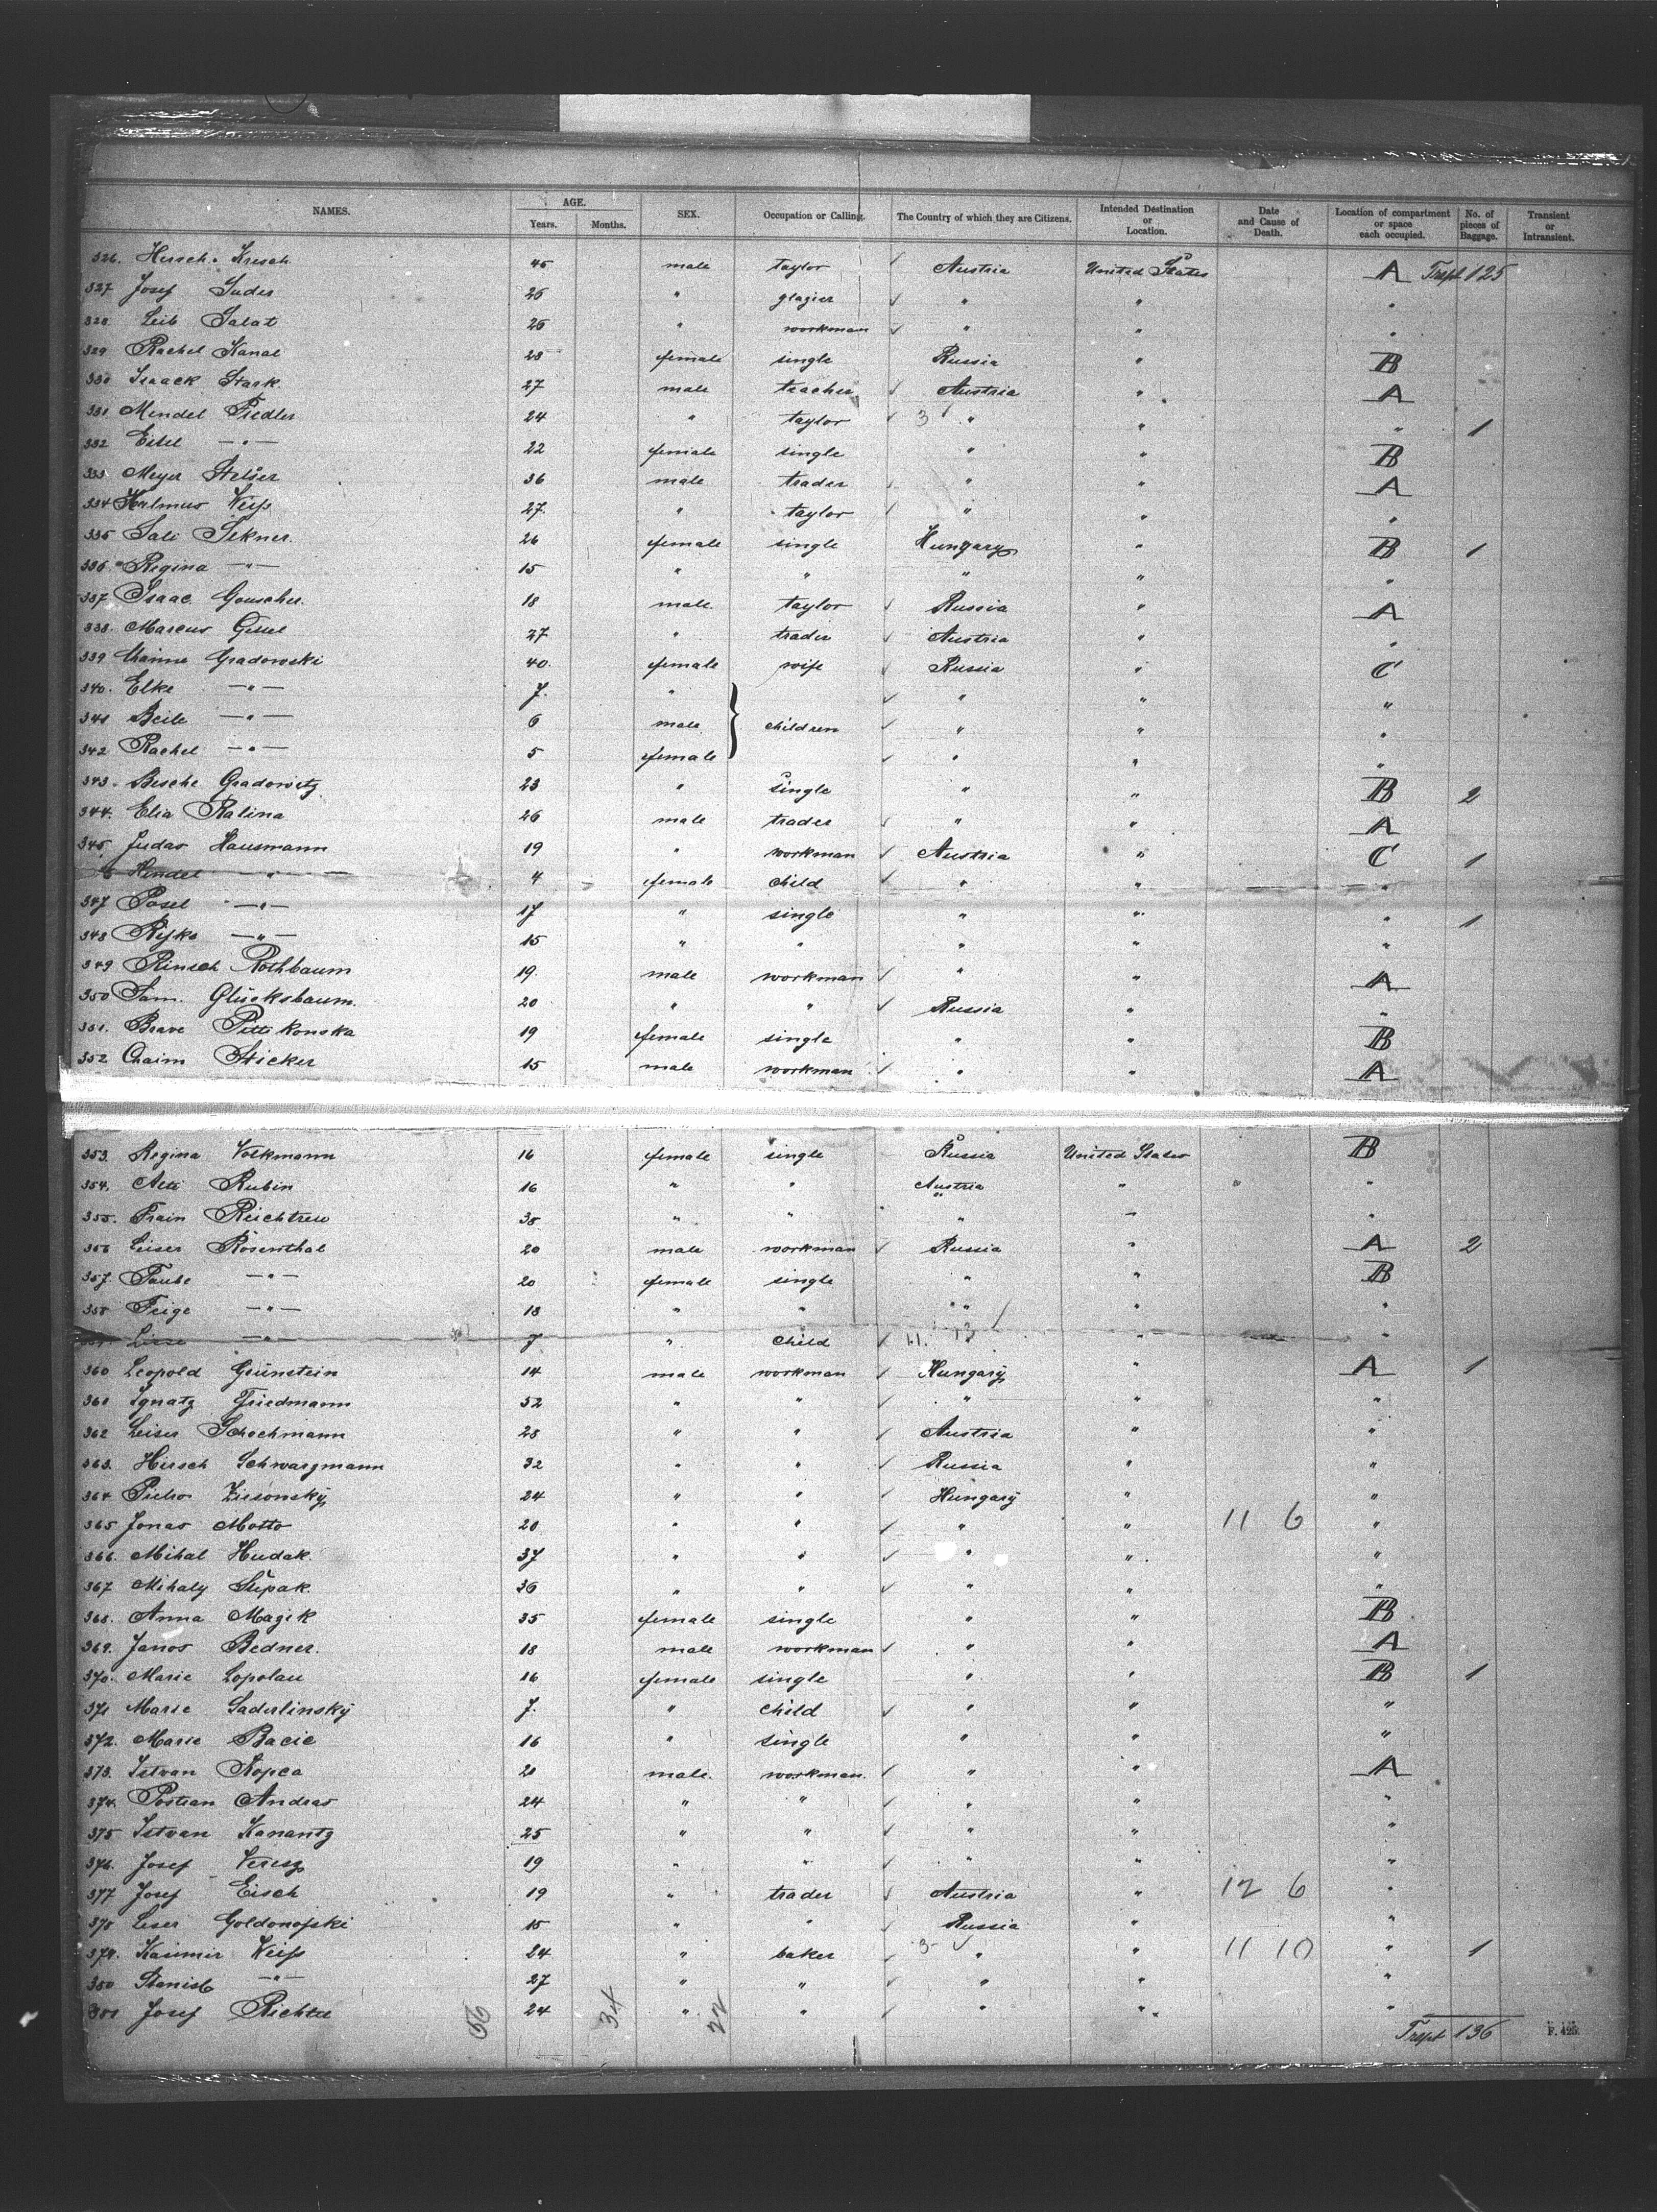 NAMES. AGE. Years. Months. SEX. Occupation or Calling. The Country of which they are Citizens. Intended Destination or Location. Date and Cause of Death. Location of compartment or space each occupied. No. of pieces of Baggage. Transient or Intransient.
326. Hersch Kresch 45 male taylor Austria United States A Trspt 125
327 Josef Suder 26 " glazier " " "
328 Leib Salat 26 " workman " " "
329 Rachel Kanal 28 female single Russia " B
330 Isaack Stark 27 male teacher Austria " A
331 Mendel Fiedler 24 " taylor 3 " " " 1
332 Eisel —"— 22 female single " " B
333 Meyer Stelser 36 male trader " " A
334 Kalmus Weiss 27. " taylor " " "
335 Sali Sekner. 26 female single Hungary " B 1
336. Regina —"— 15 " " " " "
337 Isaac Gouscher. 18 male. taylor Russia " A
338. Marcus Gissel 27 " trader Austria " "
339 Chainne Gradowski 40. female wife Russia " C
340. Elke —"— 7. " " " "
341 Beile —"— 6 male children " " "
342 Rachel —"— 5 female " " "
343. Besche Gradowitz 23 " single " " B 2
344. Elia Ralina 26 male trader " " A
345. Judas Hausmann 19 " workman Austria " C 1
6 Hendel " 4 female child " " "
347 Posel —"— 17 " single " " " 1
348 Rifke —"— 15 " " " " "
349 Rinsch Rothbaum 19. male workman " " A
350 Sam. Glücksbaum. 20 " " Russia " "
351. Brave Pittikonska 19 female single " " B
352 Chaim Sticker 15 male workman " " A
353. Regina Volkmann 16 female single Russia United States B
354. Alti Rubin 16 " " Austria " "
355. Frain Reichtreu 38 " " " " "
356 Leiser Rosenthal 20 male workman Russia " A 2
357. Taube —"— 20 female single " " B
358 Feige —"— 18 " " " " "
Liese —"— 7 " child 11. 13 " "
360 Leopold Grünstein 14 male workman Hungary " A 1
361 Ignatz Friedmann 52 " " " " "
362 Leiser Schochmann 28 " " Austria " "
363. Hirsch Schwarzmann 32 " " Russia " "
364. Pietro Ziesonsky 24 " " Hungary " "
365 Jonas Motto 20 " " " " 11 6 "
366. Mihal Hudak. 37 " " " " "
367 Mihaly Supak. 36 " " " " "
368. Anna Magik 35 female single " " B
369. Janos Bedner. 18 male workman " " A
370. Marie Lopolau 16 female single " " B 1
371 Marie Saderlinsky 7. " child " " "
372. Marie Bacic 16 " single " " "
373. Istvan Kopca 20 male. workman. " " A
374. Postian Andras 24 " " " " "
375 Istvan Kanantz 25 " " " " "
376. Josef Veresz 19 " " " " "
377 Josef Eisch 19 " trader Austria " 12 6 "
378 Leser Goldonofski 15 " " Russia " "
379. Kasimir Weiss 24 " baker 3- " " 11 10 " 1
380 Stanisl —"— 27 " " " " "
381 Josef Richter 24 " " " " "
56 34 22 Trspt 136 F. 425.